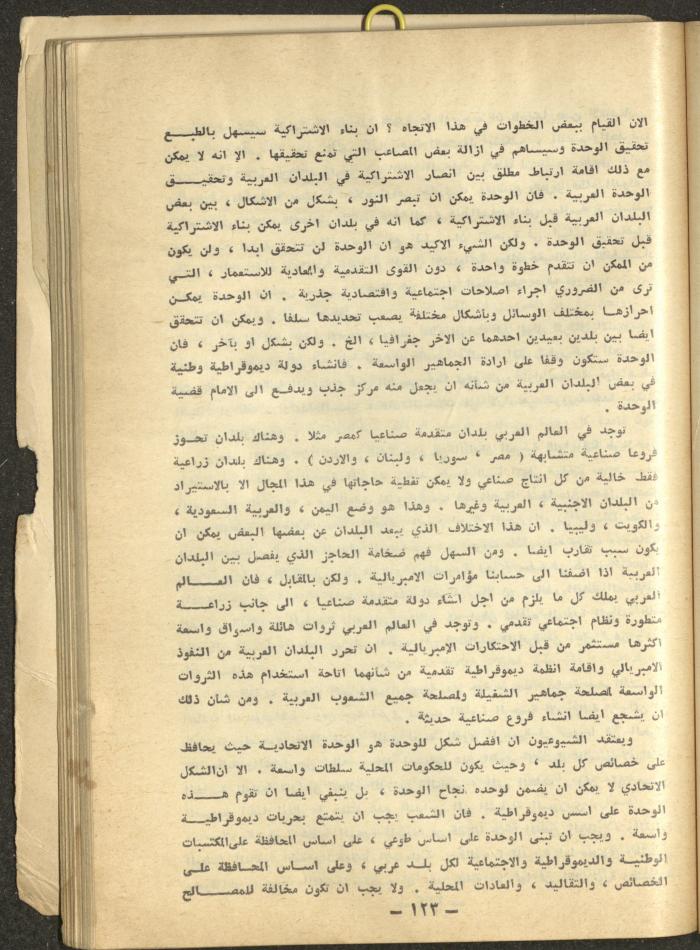 الان القيام ببعض الخطوات في هذا الاتجاه ؟ ان بناء الاشتراكية سيسهل بالطبـــع
تحقيق الوحدة وسيساهم في ازالة بعض المصاعب التي تمنع تحقيقها . الا انه لا يمكن
مع ذلك اقامة ارتباط مطلق بين انصار الاشتراكية في البلدان العربية وتحقيـــق
الوحدة العربية . فان الوحدة يمكن ان تبصر النور ، بشكل من الاشكال ، بين بعض
البلدان العربية قبل بناء الاشتراكية ، كما انه في بلدان اخرى يمكن بناء الاشتراكية
قبل تحقيق الوحدة . ولكن الشيء الاكيد هو ان الوحدة لن تتحقق ابدا ، ولن يكون
من الممكن ان تتقدم خطوة واحدة ، دون القوى التقدمية والمعادية للاستعمار ، التـــي
ترى من الضروري اجراء اصلاحات اجتماعية واقتصادية جذرية . ان الوحدة يمكـن
احرازها بمختلف الوسائل وباشكال مختلفة يصعب تحديدها سلفا . ويمكن ان تتحقق
ايضا بين بلدين بعيدين احدهما عن الاخر جغرافيا ، الخ . ولكن بشكل او بآخر ، فان
الوحدة ستكون وقفا على ارادة الجماهير الواسعة . فانشاء دولة ديموقراطية وطنية
في بعض البلدان العربية من شانه ان يجعل منه مركز جذب ويدفـع الى الامام قضية
الوحدة .
توجد في العالم العربي بلدان متقدمة صناعيا كمصر مثلا . وهناك بلدان تحـوز
فروعا صناعية متشابهة ( مصر ، سوريا ، ولبنان ، والاردن ) . وهناك بلدان زراعية
فقط خالية من كل انتاج صناعي ولا يمكن تغطية حاجاتها في هذا المجال الا بالاستيراد
من البلدان الاجنبية ، العربية وغيرها . وهذا هو وضع اليمن ، والعربية السعودية ،
والكويت ، وليبيا . ان هذا الاختلاف الذي يبعد البلدان عن بعضها البعض يمكن ان
يكون سبب تقارب ايضا . ومن السهل فهم ضخامة الحاجز الذي يفصل بين البلدان
العربية اذا اضفنا الى حسابنا مؤامرات الامبريالية . ولكن بالمقابل ، فان العـــالم
العربي يملك كل ما يلزم من اجل انشاء دولة متقدمة صناعيا ، الى جانب زراعـــة
متطورة ونظام اجتماعي تقدمي . وتوجد في العالم العربي ثروات هائلة واسواق واسعة
اكثرها مستثمر من قبل الاحتكارات الامبريالية . ان تحرر البلدان العربية من النفوذ
الامبريالي واقامة انظمة ديموقراطية تقدمية من شانهما اتاحة استخدام هذه الثروات
الواسعة لمصلحة جماهير الشغيلة ولمصلحة جميع الشعوب العربية . ومن شان ذلك
ان يشجع ايضا انشاء فروع صناعية حديثة .
ويعتقد الشيوعيون ان افضل شكل للوحدة هو الوحدة الاتحاديـة حيث يحافظ
على خصائص كل بلد ، وحيث يكون للحكومات المحلية سلطات واسعة . الا ان الشكل
الاتحادي لا يمكن ان يضمن لوحده نجاح الوحدة ، بل ينبغي ايضا ان تقوم هـــذه
الوحدة على اسس ديموقراطية . فان الشعب يجب ان يتمتع بحريات ديموقراطيــة
واسعة . ويجب ان تبنى الوحدة على اساس طوعي ، على اساس المحافظة على المكتسبات
الوطنيـة والديموقراطية والاجتماعية لكل بلـد عربي ، وعلى اسـاس المحـافظة علـى
الخصائص ، والتقاليد ، والعادات المحلية . ولا يجب ان تكون مخالفة للمصــالح
– ١٢٣ –